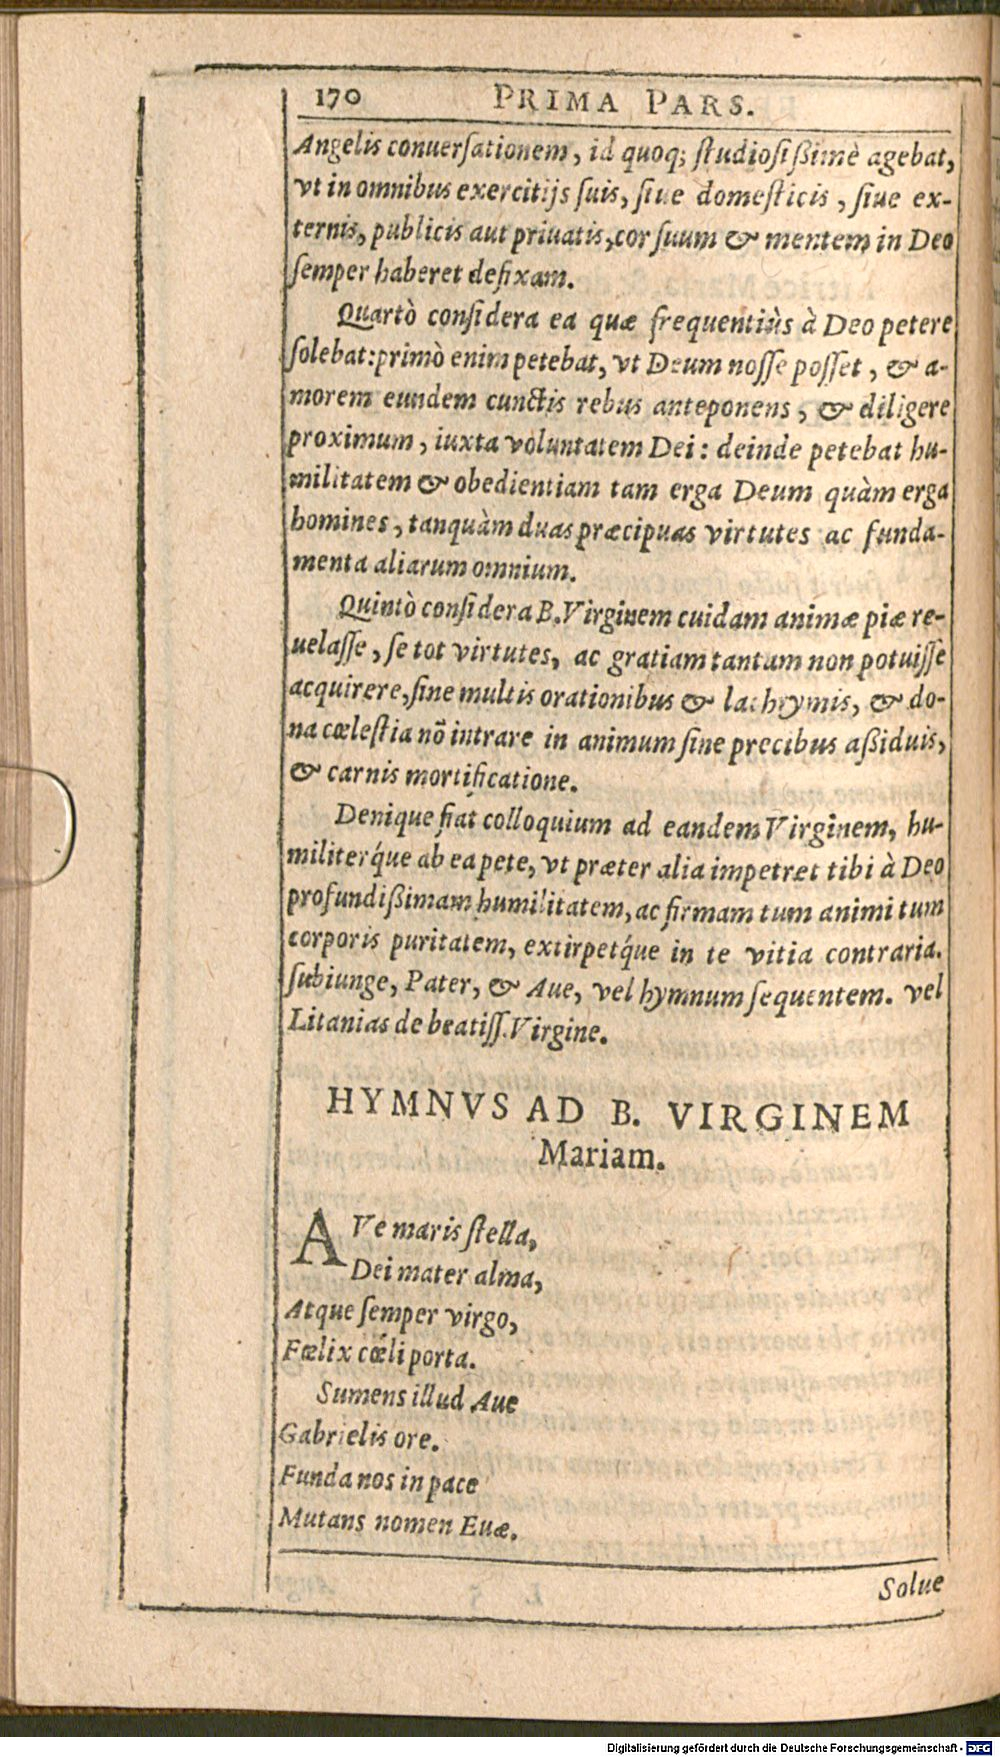 170 PRIMA PARS.
Angelis conuerſationem, id quoq; ſtudioſißimè agebat,
vt in omnibus exercitijs ſuis, ſiue domeſticis, ſiue ex-
ternis, publicis aut priuatis, cor ſuum & mentem in Deo
ſemper haberet defixam.
Quartò conſidera ea quæ frequentiùs à Deo petere
ſolebat: primò enim petebat, vt Deum noſſe poſſet, & a-
morem eundem cunctis rebus anteponens, & diligere
proximum, iuxta voluntatem Dei: deinde petebat hu-
militatem & obedientiam tam erga Deum quàm erga
homines, tanquàm duas præcipuas virtutes ac funda-
menta aliarum omnium.
Quintò conſidera B. Virginem cuidam animæ piæ re-
uelaſſe, ſe tot virtutes, ac gratiam tantam non potuiſſe
acquirere, ſine multis orationibus & lachrymis, & do-
na cœleſtia nō intrare in animum ſine precibus aßiduis,
& carnis mortificatione.
Denique fiat colloquium ad eandem Virginem, hu-
militerq́ue ab ea pete, vt præter alia impetret tibi à Deo
profundißimam humilitatem, ac firmam tum animi tum
corporis puritatem, extirpetq́ue in te vitia contraria.
ſubiunge, Pater, & Aue, vel hymnum ſequentem. vel
Litanias de beatiſſ. Virgine.
HYMNVS AD B. VIRGINEM
Mariam.
AVe maris ſtella,
Dei mater alma,
Atque ſemper virgo,
Fœlix cœ́li porta.
Sumens illud Aue
Gabrielis ore.
Funda nos in pace
Mutans nomen Euæ.
Solue
Digitalisierung gefördert durch die Deutsche Forschungsgemeinschaft - DFG